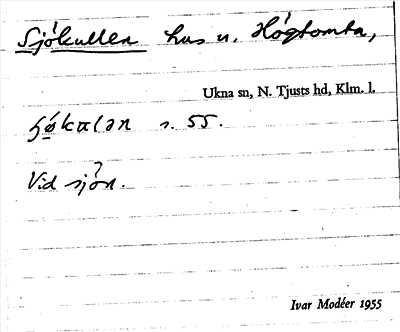 Sjökullen hus u. Högtomta,
Ukna sn, N. Tjusts hd, Klm. l.
s. 55.
Vid sjön.
Ivar Modéer 1955